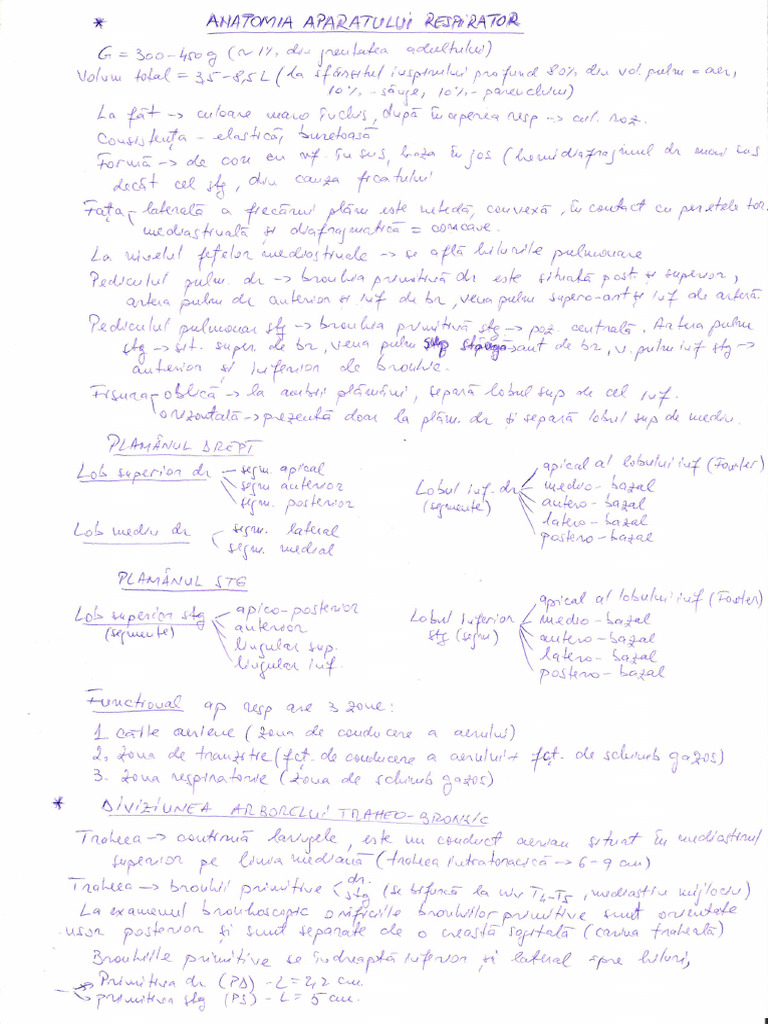 * ANATOMIA APARATULUI RESPIRATOR
G = 300-450g (~ 1% din greutatea adultului)
Volum total = 3,5 - 8,5 L (la sfârșitul inspirului profund 80% din vol. pulm = aer,
10% - sânge, 10% - parenchim)
La făt → culoare maro închis, după începerea resp → cul. roz.
Consistența - elastică, buretoasă
Formă → de con cu vf. în sus, baza în jos (hemidiafragmul dr mai sus
decât cel stg, din cauza ficatului
Fața - laterală a fiecărui plăm este netedă, convexă, în contact cu peretele tor.
mediastinală și diafragmatică = concave.
La nivelul fețelor mediastinale → se află hilurile pulmonare
Pediculul pulm. dr → bronhia primitivă dr este situată post și superior,
artera pulm dr anterior și inf de br, vena pulm supero-ant și inf de arteră.
Pediculul pulmonar stg → bronhia primitivă stg → poz. centrală. Artera pulm
stg → sit. super. de br, vena pulm sup stg → ant de br, v. pulm inf stg →
anterior și inferior de bronhie.
Fisura - oblică → la ambii plămâni, separă lobul sup de cel inf.
orizontală → prezentă doar la plăm. dr și separă lobul sup de mediu.
PLAMÂNUL DREPT
Lob superior dr - segm. apical
segm anterior
segm. posterior
Lob mediu dr segm. lateral
segm. medial
Lobul inf. dr (segmente)
apical al lobului inf (Fowler)
medio - bazal
antero - bazal
latero - bazal
postero - bazal
PLAMÂNUL STG
Lob superior stg (segmente)
apico-posterior
anterior
lingular sup.
lingular inf.
Lobul inferior stg (segm)
apical al lobului inf (Fowler)
medio - bazal
antero - bazal
latero - bazal
postero - bazal
Functional ap resp are 3 zone:
1. căile aeriene (zona de conducere a aerului)
2. zona de tranzitie (fcț. de conducere a aerului + fcț. de schimb gazos)
3. zona respiratorie (zona de schimb gazos)
* DIVIZIUNEA ARBORELUI TRAHEO-BRONZIC
Traheea → continuă laringele, este un conduct aerian situat în mediastinul
superior pe linia mediană (traheea intratoracică → 6-9 cm)
Traheea → bronhii primitive dr. stg (se bifurcă la niv T4-T5, mediastin mijlociu)
La examenul bronhoscopic orificiile bronhiilor primitive sunt orientate
usor posterior și sunt separate de o creastă sagitală (carina traheală)
Bronhiile primitive se îndreaptă inferior și lateral spre hiluri,
Primitiva dr (PD) - L = 2,2 cm.
primitiva stg (PS) - L = 5 cm.